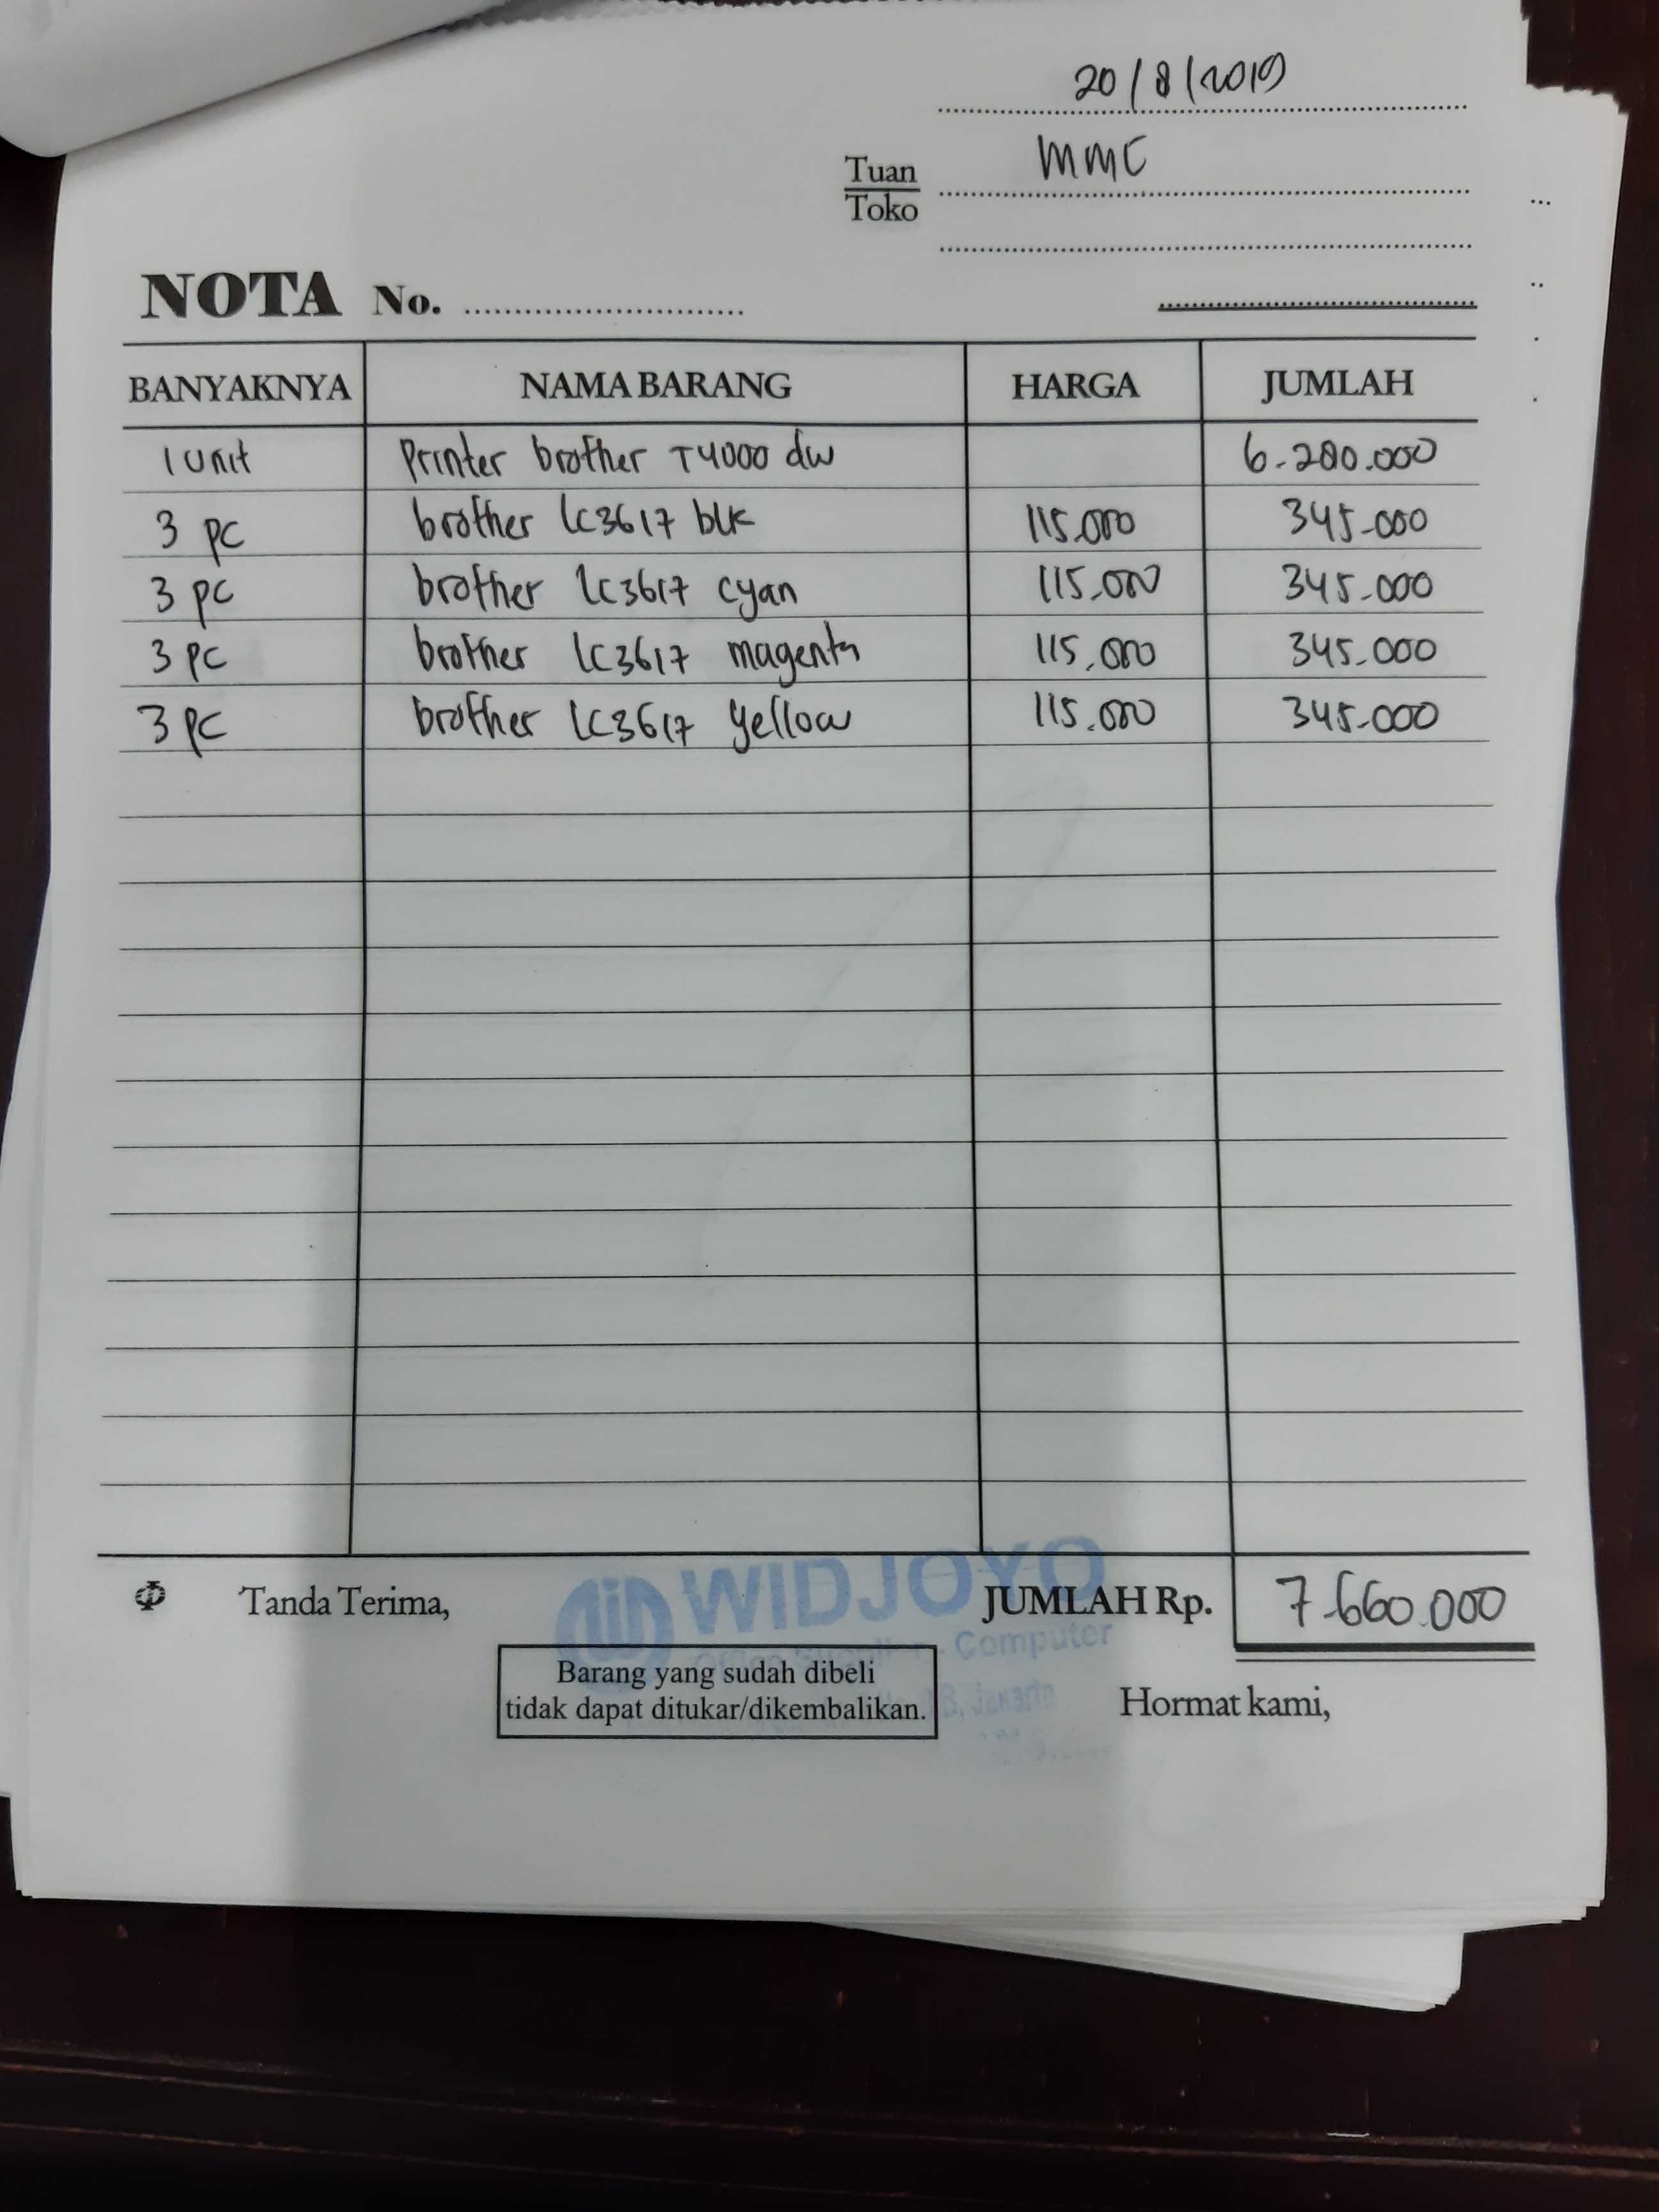 20/8/2019
Tuan
Toko
MMC
NOTA No.
BANYAKNYA NAMA BARANG HARGA JUMLAH
1 Unit Printer brother T4000 dw 6.280.000
3 pc brother LC3617 blk 115.000 345.000
3 pc brother LC3617 cyan 115.000 345.000
3 pc brother LC3617 magenta 115.000 345.000
3 pc brother LC3617 yellow 115.000 345.000
WIDJOYO
Computer
Jakarta
Tanda Terima, JUMLAH Rp. 7.660.000
Barang yang sudah dibeli
tidak dapat ditukar/dikembalikan.
Hormat kami,